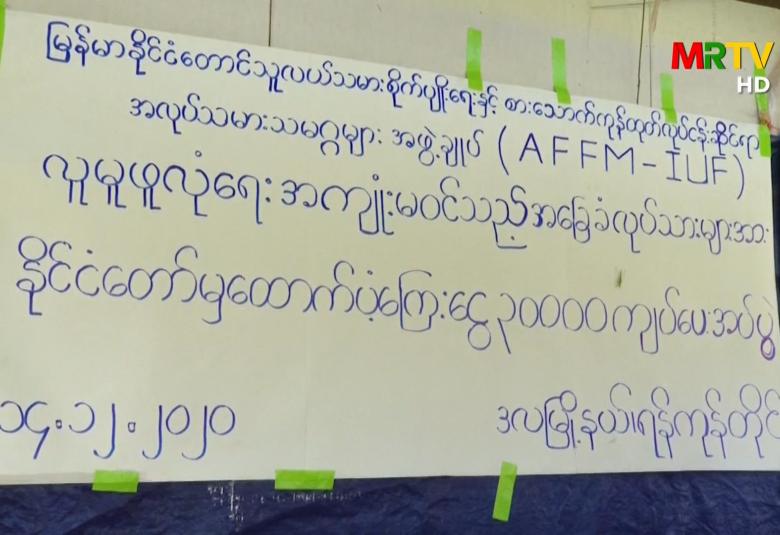 MRTV
HD
မြန်မာနိုင်ငံတောင်သူလယ်သမားစိုက်ပျိုးရေးနှင့် စားသောက်ကုန်ထုတ်လုပ်ငန်းဆိုင်ရာ
အလုပ်သမားသမဂ္ဂများ အဖွဲ့ချုပ် (AFFM-IUF)
လူမှုဖူလုံရေးအကျုံးမဝင်သည့်အခြေခံလုပ်သားများအား
နိုင်ငံတော်မှထောက်ပံ့ကြေးငွေ၃၀၀၀၀ကျပ်ပေးအပ်ပွဲ
၁၄.၁၂.၂၀၂၀
ဒလမြို့နယ်၊ရန်ကုန်တိုင်